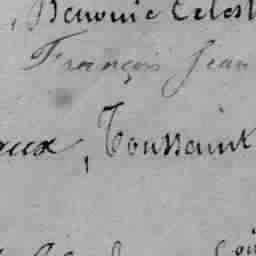 , Benonie Celest
François Jean
oux, Toussaint